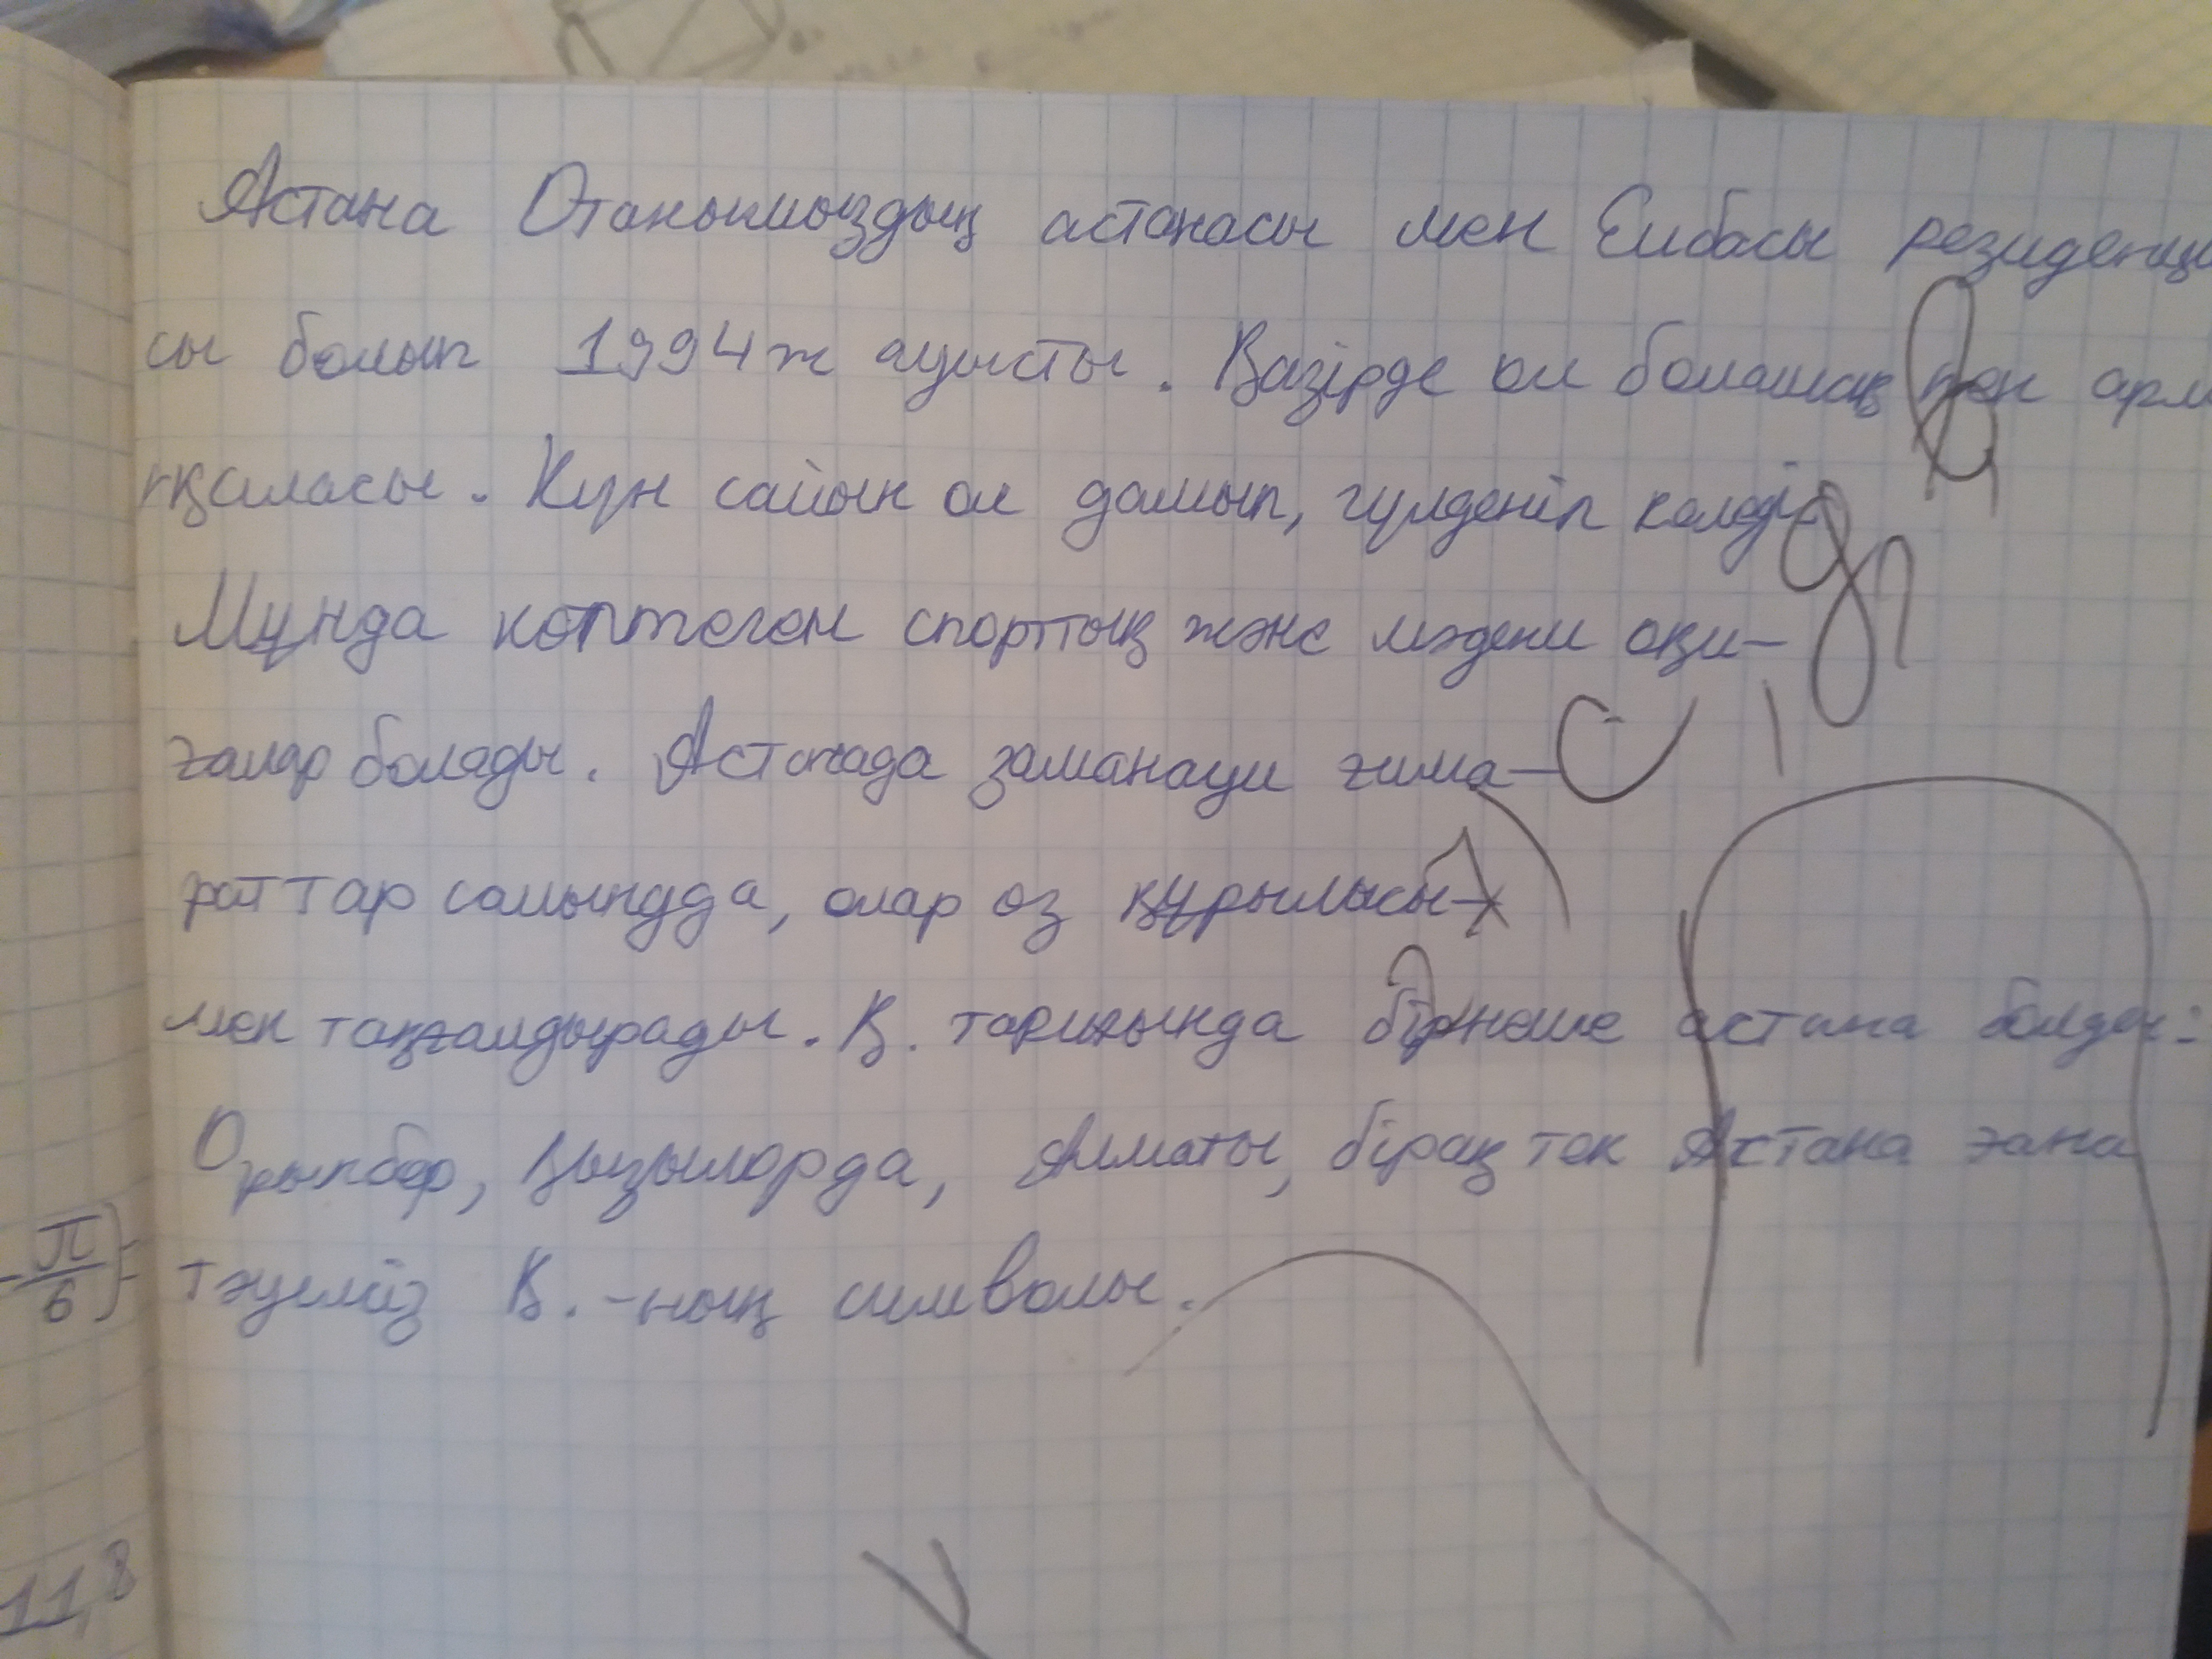 Астана Отанымыздың астанасы мен Елбасы резиденци
сы болып 1994ж ауысты. Қазірде ол болашақ пен арм
қаласы. Күн сайын ол дамып, гүлденіп келеді.
Мұнда көптеген спорттық және мәдени оқи-
ғалар болады. Астанада заманауи ғима-
раттар салынуда, олар өз құрылысы-
мен таңғалдырады. Қ. тарихында бірнеше астана болды:
Орынбор, Қызылорда, Алматы, бірақ тек Астана ғана
- П/6) = тәуелсіз Қ.-ның символы.
11,8